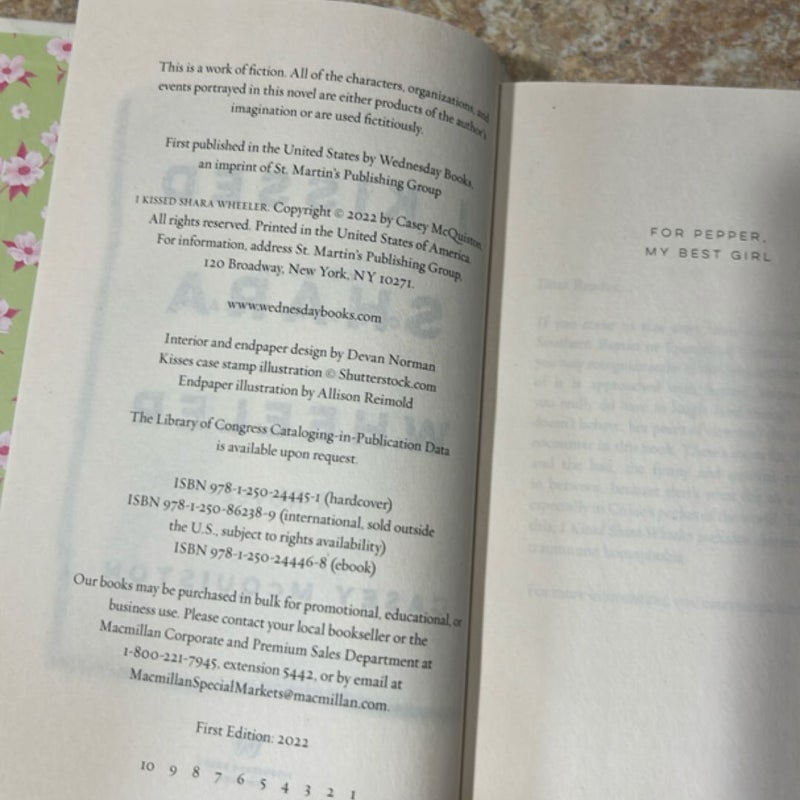 This is a work of fiction. All of the characters, organizations, and
events portrayed in this novel are either products of the author's
imagination or are used fictitiously.
First published in the United States by Wednesday Books,
an imprint of St. Martin's Publishing Group
I KISSED SHARA WHEELER. Copyright © 2022 by Casey McQuiston.
All rights reserved. Printed in the United States of America.
For information, address St. Martin's Publishing Group,
120 Broadway, New York, NY 10271.
www.wednesdaybooks.com
Interior and endpaper design by Devan Norman
Kisses case stamp illustration © Shutterstock.com
Endpaper illustration by Allison Reimold
The Library of Congress Cataloging-in-Publication Data
is available upon request.
ISBN 978-1-250-24445-1 (hardcover)
ISBN 978-1-250-86238-9 (international, sold outside
the U.S., subject to rights availability)
ISBN 978-1-250-24446-8 (ebook)
Our books may be purchased in bulk for promotional, educational, or
business use. Please contact your local bookseller or the
Macmillan Corporate and Premium Sales Department at
1-800-221-7945, extension 5442, or by email at
MacmillanSpecialMarkets@macmillan.com.
First Edition: 2022
10 9 8 7 6 5 4 3 2 1
FOR PEPPER,
MY BEST GIRL